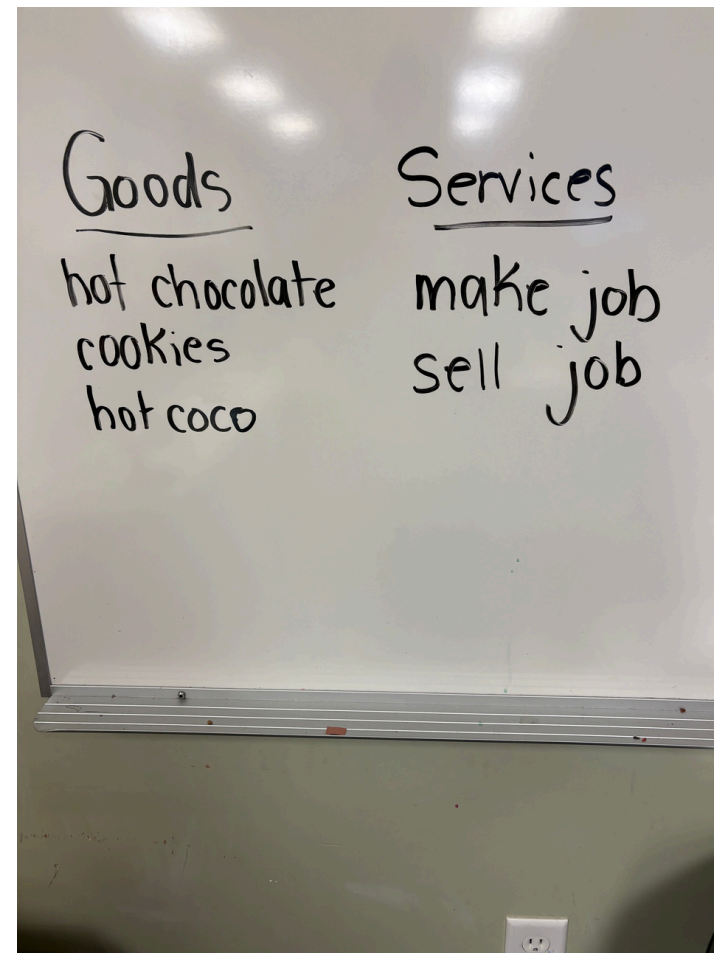 Goods
hot chocolate
cookies
hot coco
Services
make job
sell job